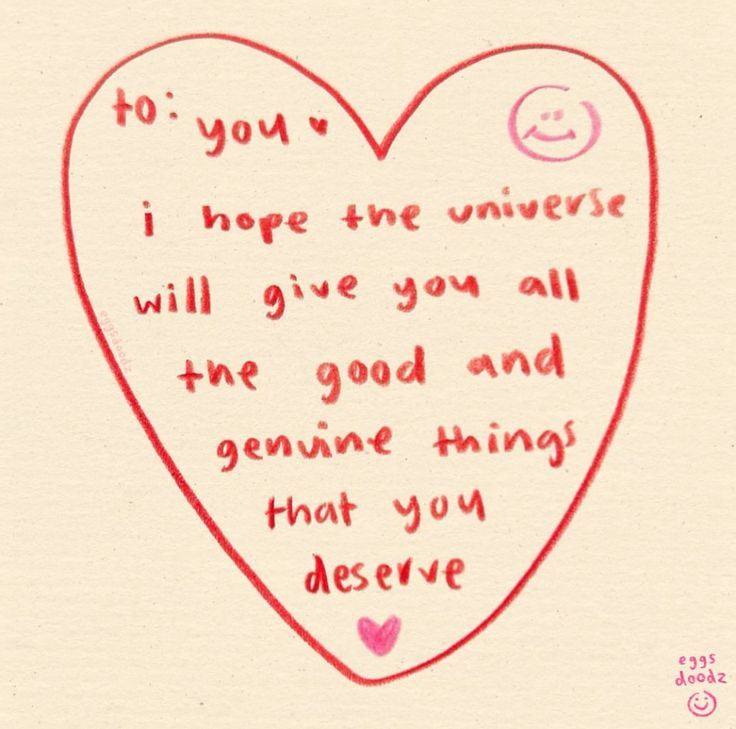 to: you
i hope the universe
will give you all
the good and
genuine things
that you
deserve
eggsdoodz
eggs
doodz